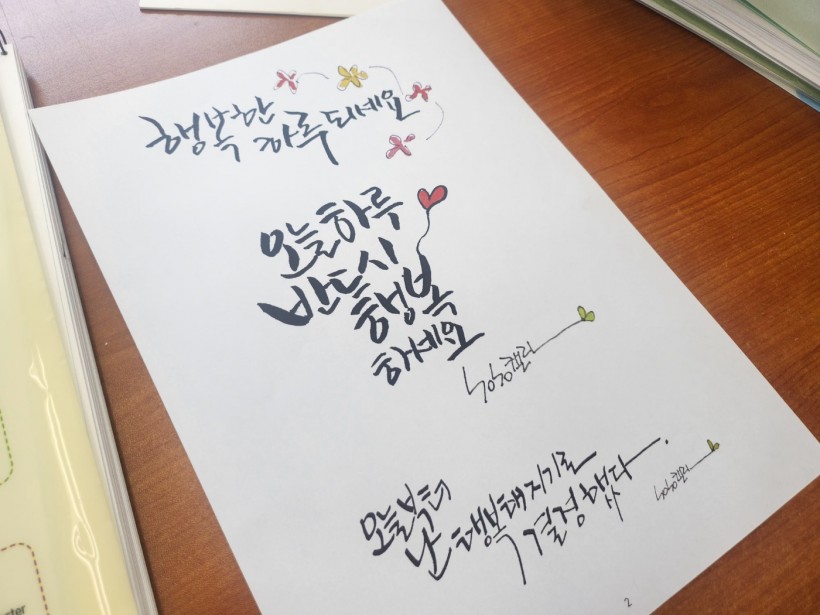 행복한
하루 되세요
오늘하루
반드시
행복
하세요
오늘부터
난 행복해지기로
결정했다.
2